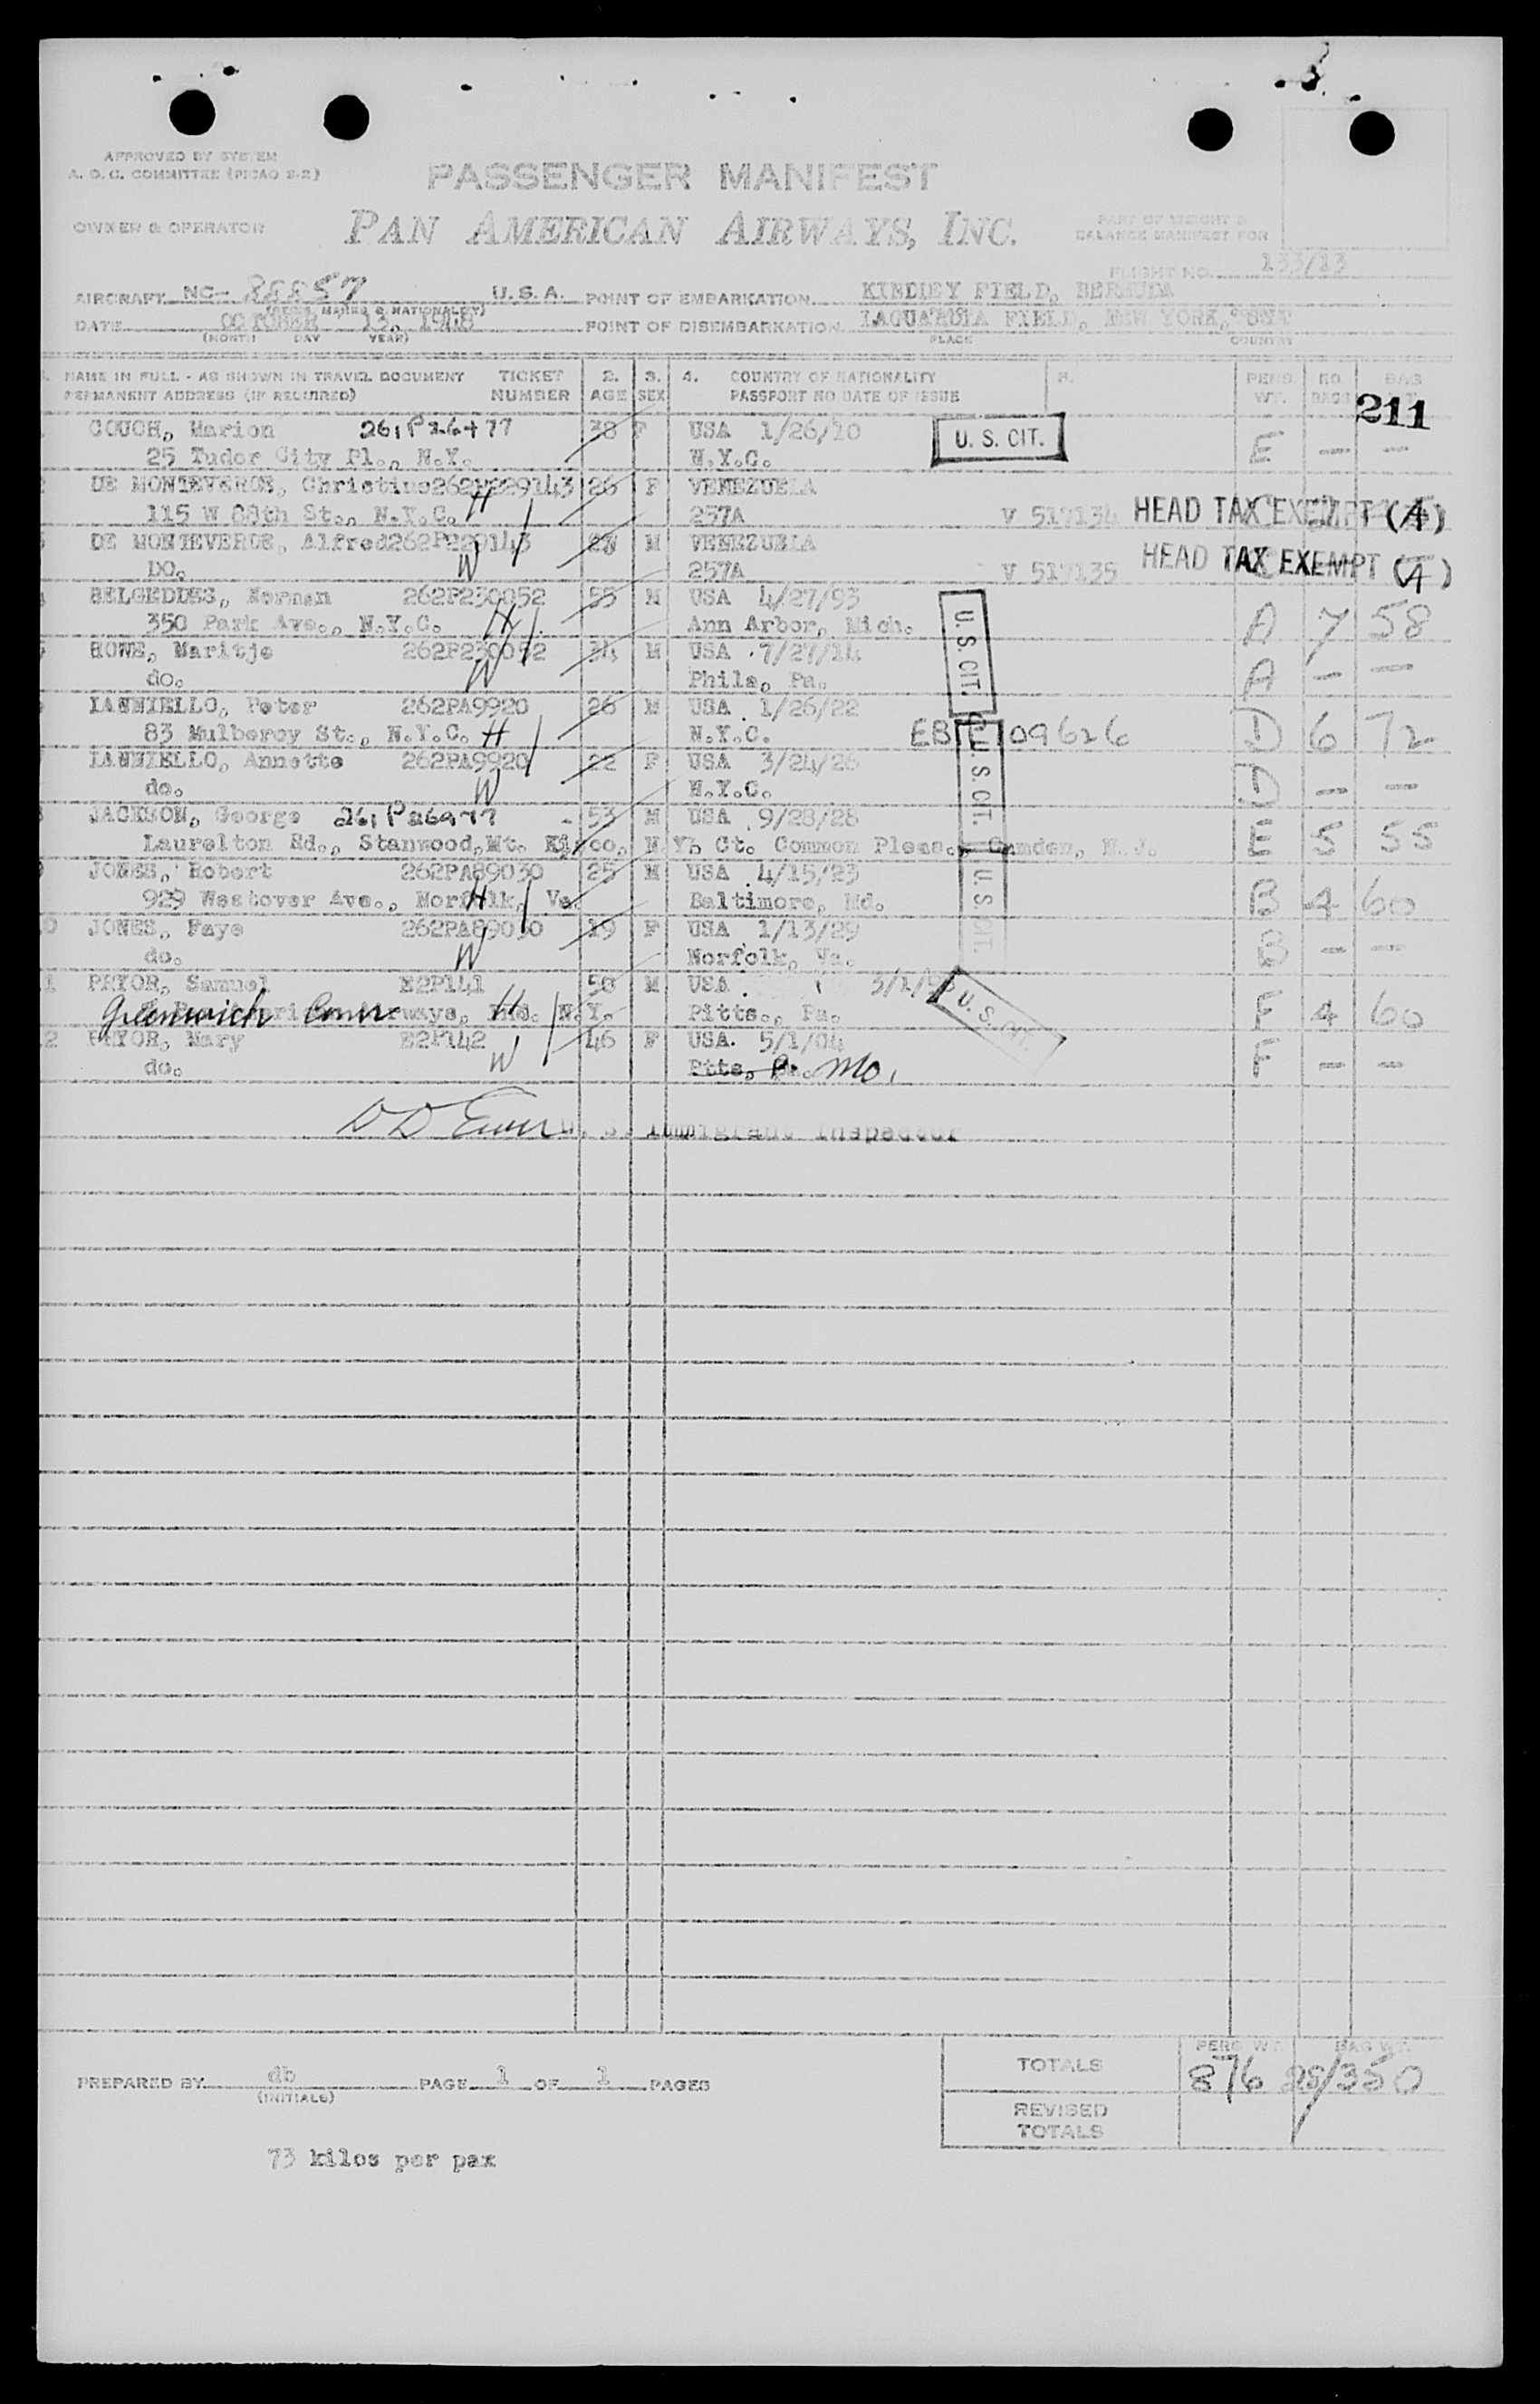 APPROVED BY SYSTEM
A. O. C. COMMITTEE (PICAO S-2)
PASSENGER MANIFEST
OWNER & OPERATOR
PAN AMERICAN AIRWAYS, INC.
PART OF WEIGHT &
BALANCE MANIFEST FOR
FLIGHT NO. 133/13
AIRCRAFT NC- 88857 U.S.A. POINT OF EMBARKATION KINDLEY FIELD, BERMUDA
(REGIS. MARKS & NATIONALITY)
DATE OCTOBER 13, 1948 POINT OF DISEMBARKATION LAGUARDIA FIELD, NEW YORK, USA
(MONTH DAY YEAR) PLACE COUNTRY
1. NAME IN FULL - AS SHOWN IN TRAVEL DOCUMENT TICKET 2. 3. 4. COUNTRY OF NATIONALITY 5. PERS. NO. BAG
PERMANENT ADDRESS (IF REQUIRED) NUMBER AGE SEX PASSPORT NO DATE OF ISSUE WT. BAGS
211
1 COUCH, Marion 261P26477 38 F USA 1/26/10 U. S. CIT. E — —
25 Tudor City Pl., N.Y. N.Y.C.
2 DE MONTEVERDE, Christine 262P229143 26 F VENEZUELA
115 W 88th St., N.Y.C. H 257A V 517134 HEAD TAX EXEMPT (A)
3 DE MONTEVERDE, Alfred 262P229143 28 M VENEZUELA
DO. W 257A V 517135 HEAD TAX EXEMPT (A)
4 BELGEDDES, Norman 262P230052 55 M USA 4/27/93 U. S. CIT. A 7 58
350 Park Ave., N.Y.C. H Ann Arbor, Mich.
5 HOWE, Maritje 262P230052 34 M USA 7/27/14 A — —
do. W Phila, Pa.
6 IANNIELLO, Peter 262PA9920 26 M USA 1/26/22 D 6 72
83 Mulbercy St., N.Y.C. H N.Y.C. 09626
7 IANNIELLO, Annette 262PA9920 22 F USA 3/24/26 U. S. CIT. D — —
do. W N.Y.C.
8 JACKSON, George 261P26977 53 M USA 9/28/28 E 5 55
Laurelton Rd., Stanwood, Mt. Kisco, N.Y. Ct. Common Pleas, Camden, N.J.
9 JONES, Robert 262PA89030 25 M USA 4/15/23 U. S. CIT. B 4 60
929 Westover Ave., Norfolk, Va. H Baltimore, Md.
10 JONES, Faye 262PA89030 19 F USA 1/13/29 B — —
do. W Norfolk, Va.
11 PRYOR, Samuel E2P141 50 M USA 3/1/98 U. S. CIT. F 4 60
Greenwich Conn H N.Y. Pitts., Pa.
12 PRYOR, Mary E2P142 46 F USA. 5/1/04 F — —
do. W Ptts, Pa. Mo.
U. S. Immigrant Inspector
PREPARED BY db PAGE 1 OF 1 PAGES
(INITIALS)
TOTALS PERS WT. 876 BAG WT. 28/350
REVISED TOTALS
73 kilos per pax